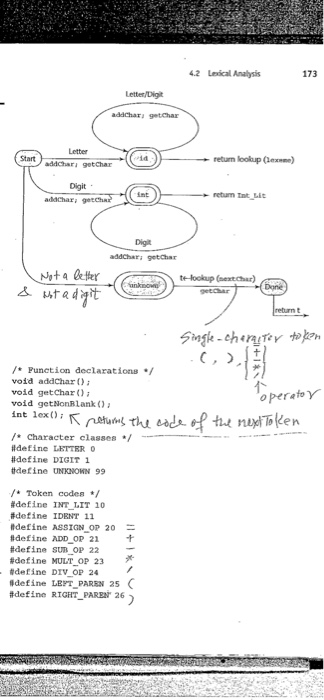 4.2 Lexical Analysis 173
Letter/Digit
addChar; getChar
Start
Letter
addChar; getChar
id
return lookup (Lexeme)
Digit
addChar; getChar
int
return Int_Lit
Digit
addChar; getChar
Not a letter
& Not a digit
unknown
t←lookup (nextChar)
getChar
Done
return t
Single-character token
( , ) , + - * /
operator
/* Function declarations */
void addChar();
void getChar();
void getNonBlank();
int lex(); returns the code of the next Token
/* Character classes */
#define LETTER 0
#define DIGIT 1
#define UNKNOWN 99
/* Token codes */
#define INT_LIT 10
#define IDENT 11
#define ASSIGN_OP 20 =
#define ADD_OP 21 +
#define SUB_OP 22 -
#define MULT_OP 23 *
#define DIV_OP 24 /
#define LEFT_PAREN 25 (
#define RIGHT_PAREN 26 )